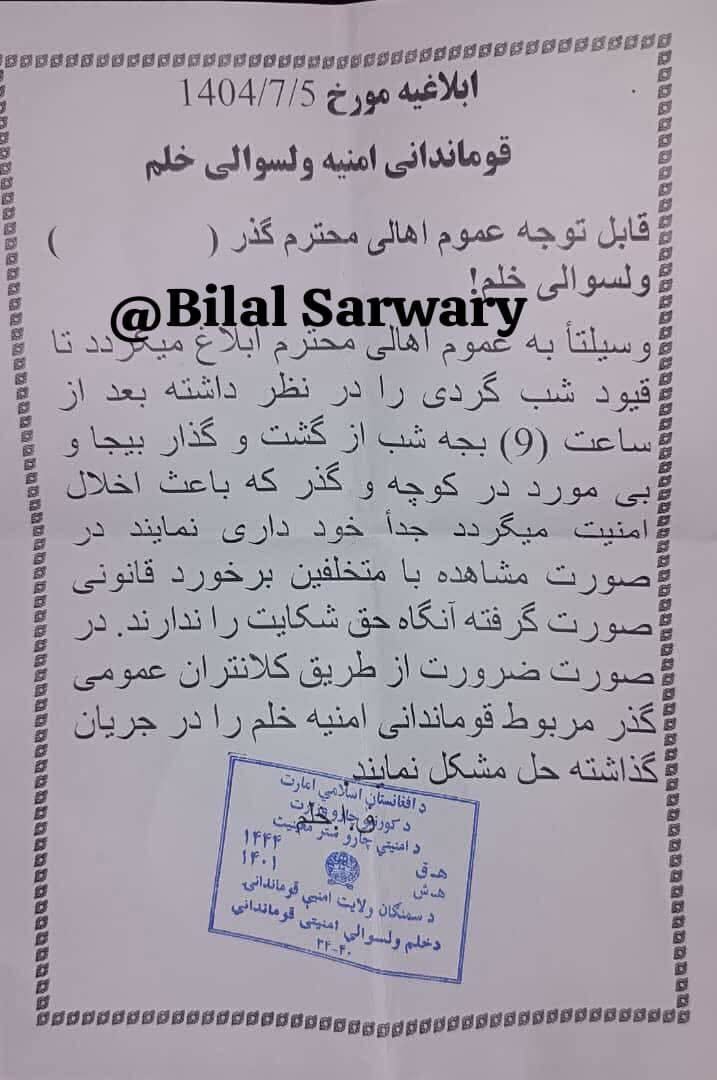 ابلاغیه مورخ 1404/7/5
قوماندانی امنیه ولسوالی خلم
قابل توجه عموم اهالی محترم گذر (          )
ولسوالی خلم!
@Bilal Sarwary
وسیلتأ به عموم اهالی محترم ابلاغ میگردد تا
قیود شب گردی را در نظر داشته بعد از
ساعت (9) بجه شب از گشت و گذار بیجا و
بی مورد در کوچه و گذر که باعث اخلال
امنیت میگردد جدأ خود داری نمایند در
صورت مشاهده با متخلفین برخورد قانونی
صورت گرفته آنگاه حق شکایت را ندارند. در
صورت ضرورت از طریق کلانتران عمومی
گذر مربوط قوماندانی امنیه خلم را در جریان
گذاشته حل مشکل نمایند
ق.ا.خلم
د افغانستان اسلامي امارت
د کورنیو چارو وزارت
د امنیتي چارو ستر معینیت
۱۴۴۴ هـ ق
۱۴۰۱ هـ ش
د سمنګان ولایت امنیې قوماندانۍ
دخلم ولسوالي امنیتي قوماندانی
۲۴-۴۰